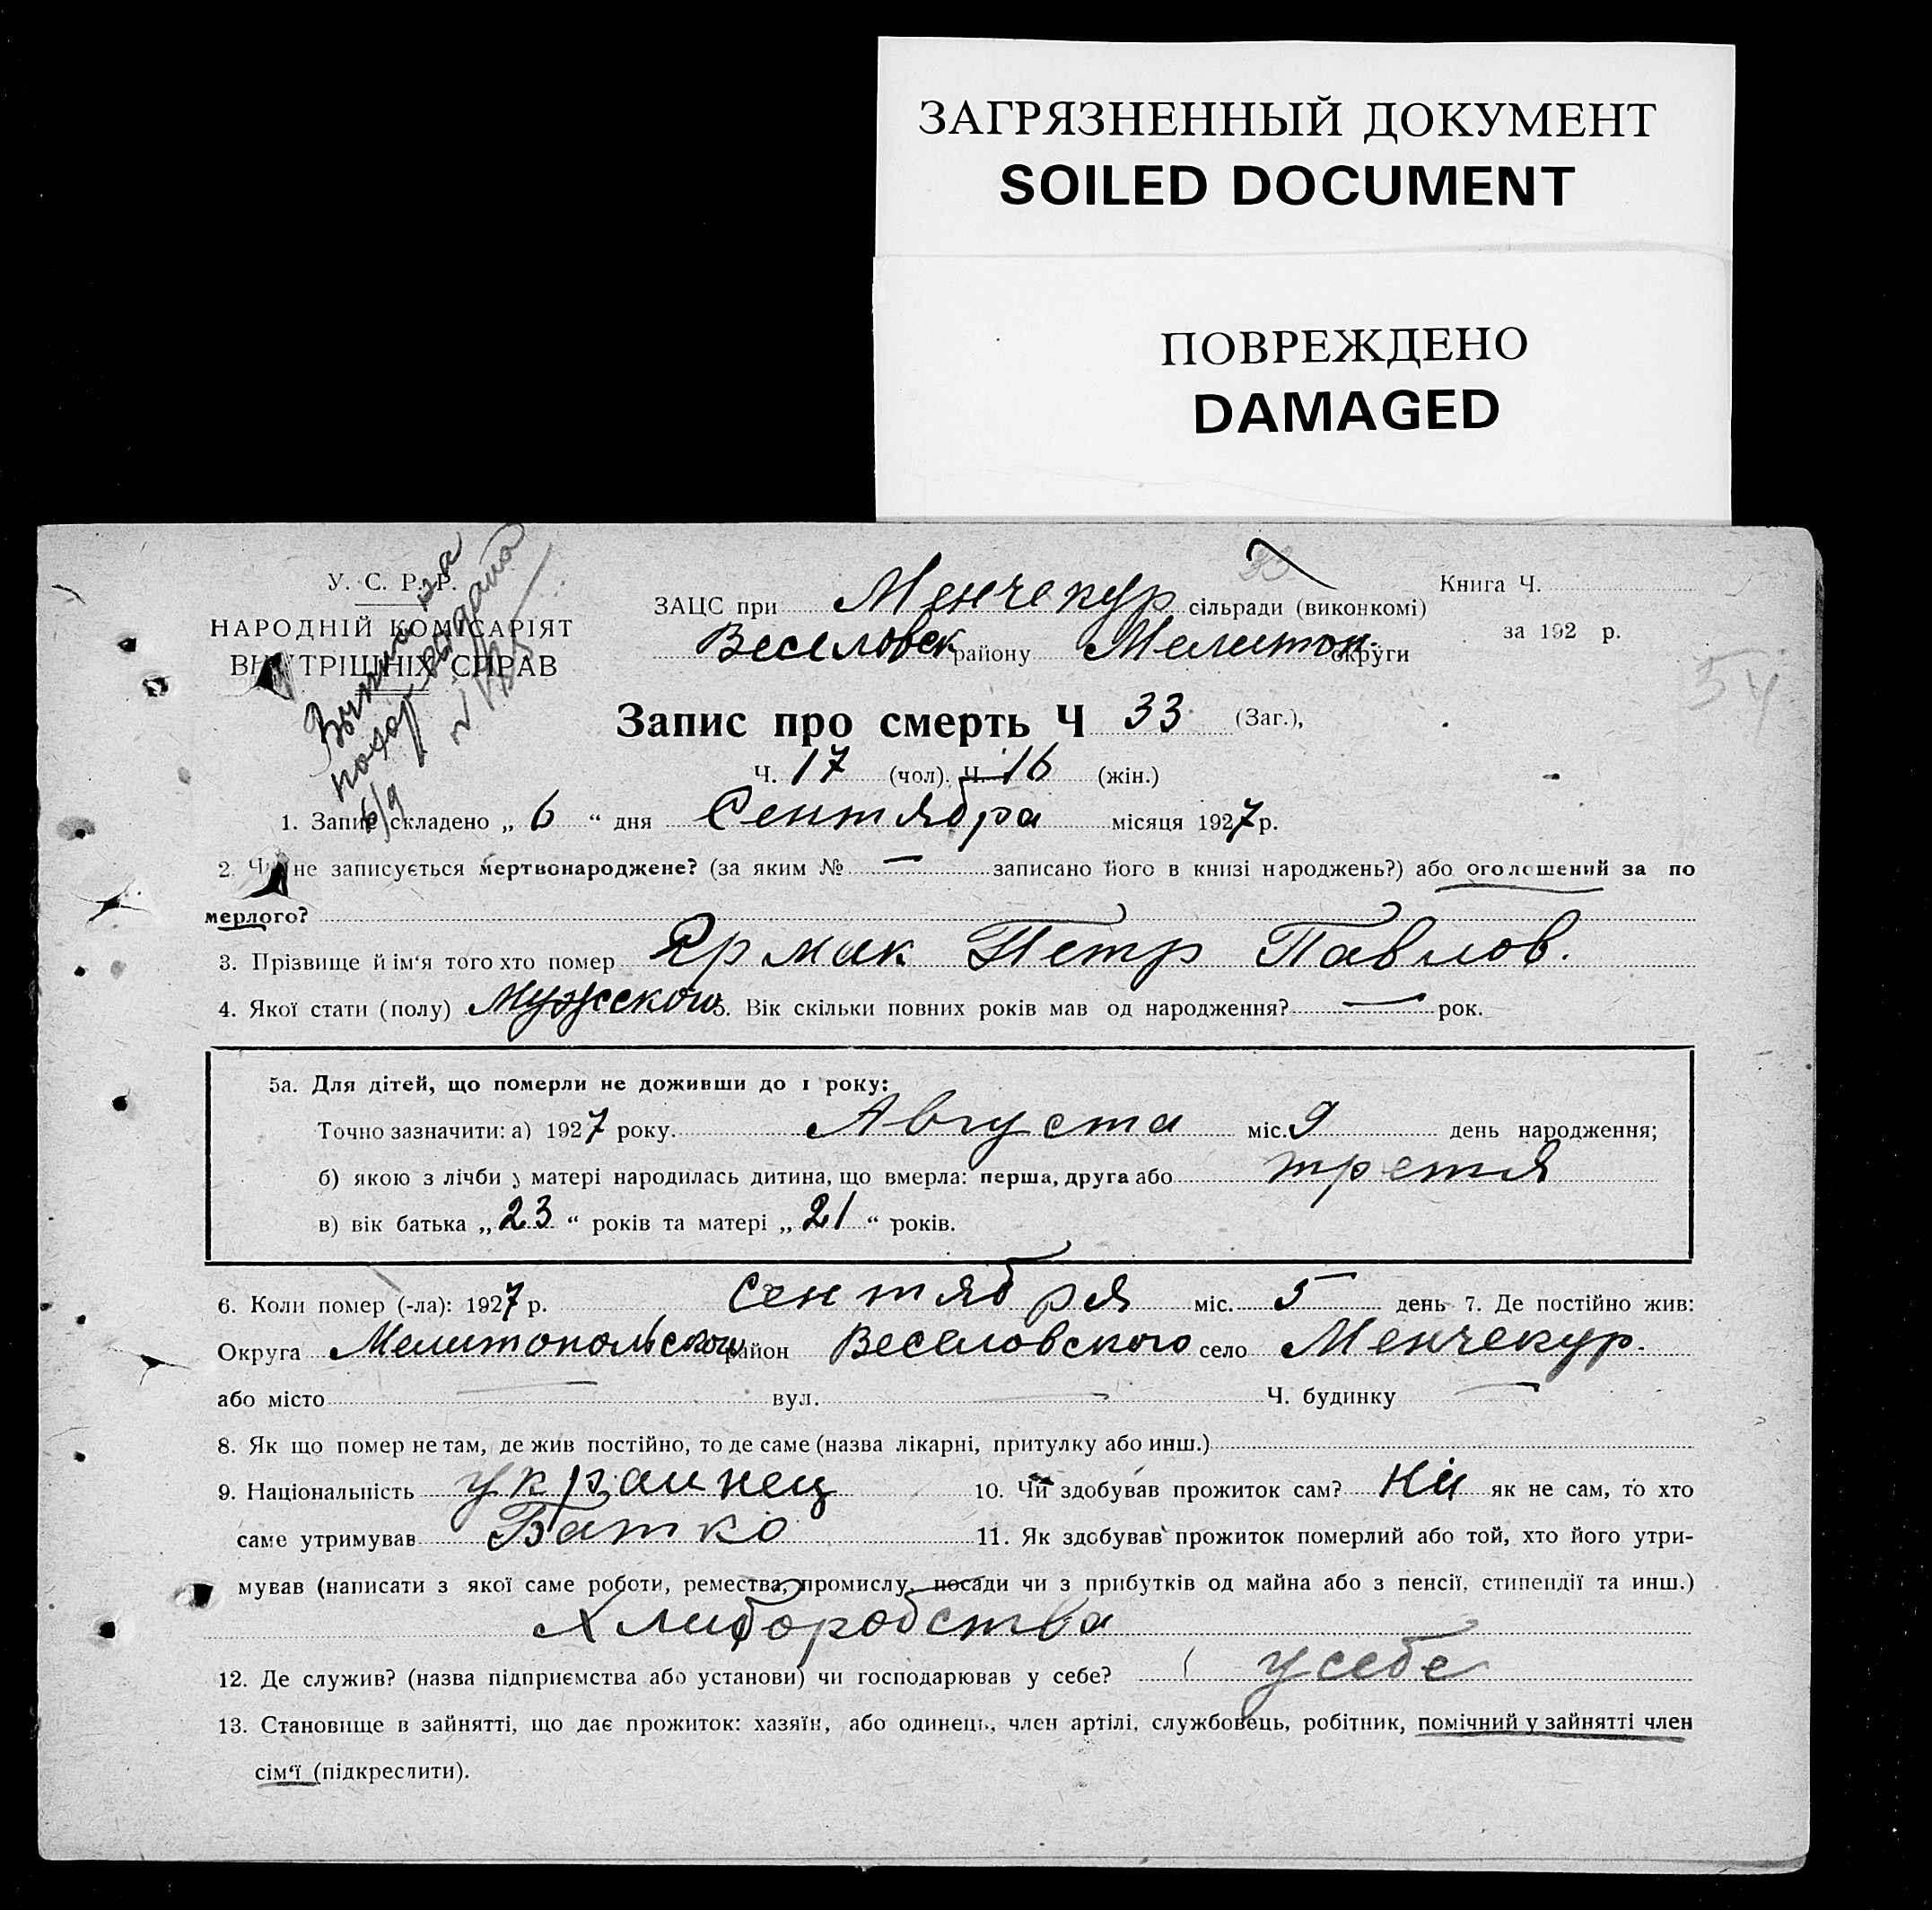 ЗАГРЯЗНЕННЫЙ ДОКУМЕНТ
SOILED DOCUMENT
ПОВРЕЖДЕНО
DAMAGED
У. С. Р. Р.
НАРОДНІЙ КОМІСАРІЯТ
ВНУТРІШНІХ СПРАВ
Выпись на
похор. выдана
6/9
ЗАЦС при Менчекур сільради (виконкомі)
Веселовск району Мелитоп. округи
Книга Ч.
за 192 р.
54
Запис про смерть Ч 33 (Заг.),
Ч. 17 (чол). Ч. 16 (жін.)
1. Запис складено „ 6 “ дня Сентября місяця 1927 р.
2. Чи не записується мертвонароджене? (за яким № — записано його в книзі народжень?) або оголошений за по
мерлого?
3. Прізвище й ім‘я того хто помер Ермак Петр Павлов.
4. Якої стати (полу) Мужеского 5. Вік скільки повних років мав од народження? — рок.
5а. Для дітей, що померли не доживши до 1 року:
Точно зазначити: а) 1927 року. Августа міс. 9 день народження;
б) якою з лічби у матері народилась дитина, що вмерла: перша, друга або третя
в) вік батька „ 23 “ років та матері „ 21 “ років.
6. Коли помер (-ла): 1927 р. Сентября міс. 5 день 7. Де постійно жив:
Округа Мелитопольского район Веселовского село Менчекур.
або місто — вул. — Ч. будинку —
8. Як що помер не там, де жив постійно, то де саме (назва лікарні, притулку або инш.)
9. Національність украинец 10. Чи здобував прожиток сам? Ни як не сам, то хто
саме утримував Батко 11. Як здобував прожиток померлий або той, хто його утри-
мував (написати з якої саме роботи, ремества, промислу, посади чи з прибутків од майна або з пенсії, стипендії та инш.)
Хлиборобства
12. Де служив? (назва підприємства або установи) чи господарював у себе? у себе
13. Становище в зайнятті, що дає прожиток: хазяїн, або одинець, член артілі, службовець, робітник, помічний у зайнятті член
сім‘ї (підкреслити).